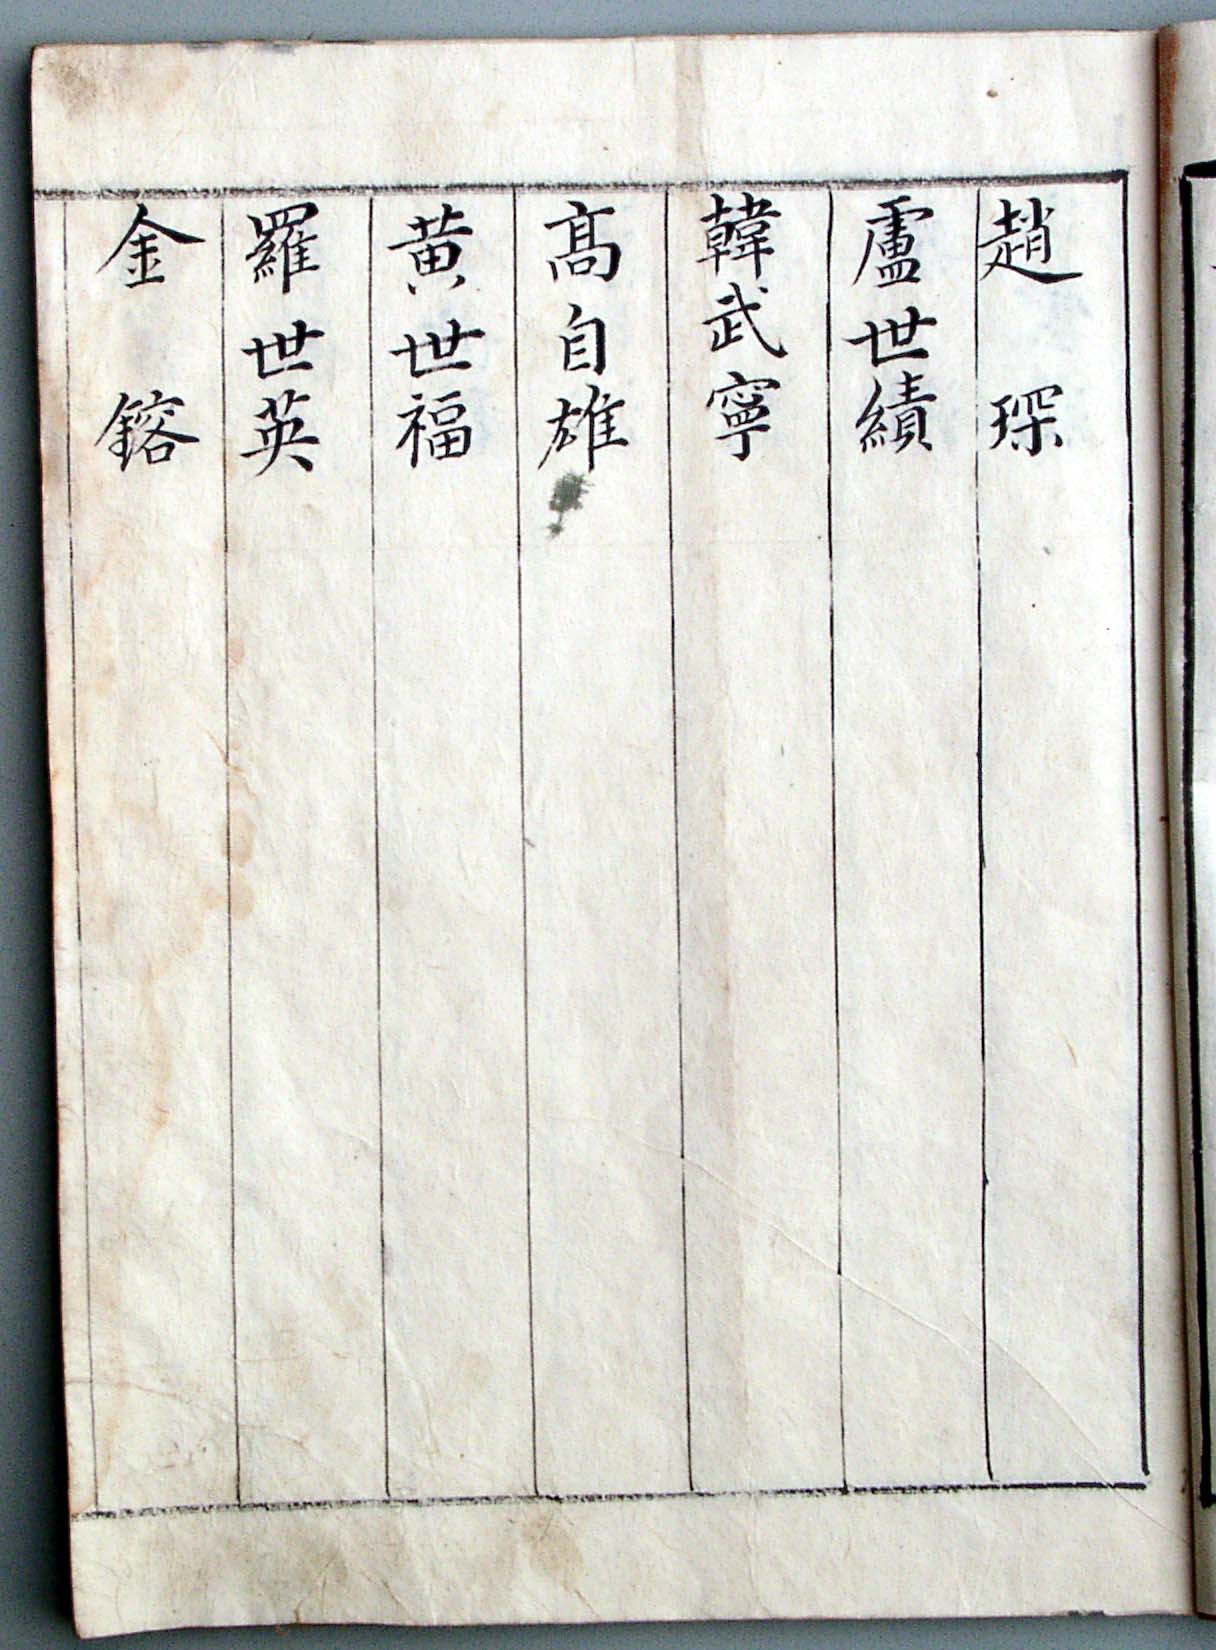 趙琛
盧世績
韓武寧
高自雄
黃世福
羅世英
金鎔